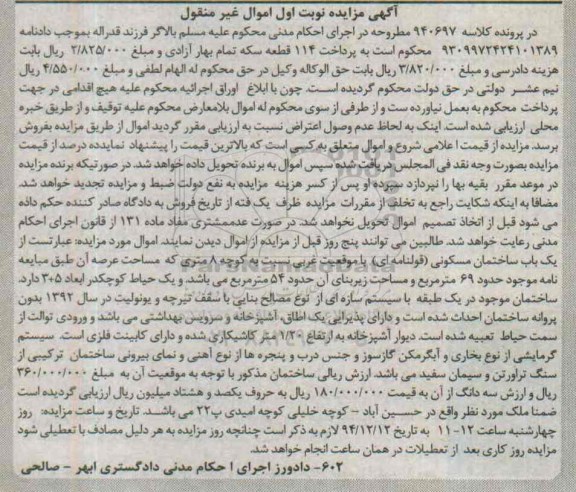 آگهی مزایده نوبت اول اموال غیر منقول
در پرونده کلاسه ۹۴۰۶۹۷ مطروحه در اجرای احکام مدنی محکوم علیه مسلم بالاگر فرزند قدراله بموجب دادنامه
۹۳۰۹۹۷۲۴۲۴۱۰۱۳۸۹ محکوم است به پرداخت ۱۱۴ قطعه سکه تمام بهار آزادی و مبلغ ۳/۸۲۵/۰۰۰ ریال بابت
هزینه دادرسی و مبلغ ۳/۸۲۰/۰۰۰ ریال بابت حق الوکاله وکیل در حق محکوم له الهام لطفی و مبلغ ۴/۵۵۰/۰۰۰ ریال
نیم عشر دولتی در حق دولت محکوم گردیده است. چون با ابلاغ اوراق اجرائیه محکوم علیه هیچ اقدامی در جهت
پرداخت محکوم به بعمل نیاورده ست و از طرفی از سوی محکوم له اموال بلامعارض محکوم علیه توقیف و از طریق خبره
محلی ارزیابی شده است. اینک به لحاظ عدم وصول اعتراض نسبت به ارزیابی مقرر گردید اموال از طریق مزایده بفروش
برسد. مزایده از قیمت اعلامی شروع و اموال متعلق به کسی است که بالاترین قیمت را پیشنهاد نماید ده درصد از قیمت
مزایده بصورت وجه نقد فی المجلس دریافت شده سپس اموال به برنده تحویل داده خواهد شد. در صورتیکه برنده مزایده
در موعد مقرر بقیه بها را نپردازد سپرده او پس از کسر هزینه مزایده به نفع دولت ضبط و مزایده تجدید خواهد شد.
مضافا به اینکه شکایت راجع به تخلف از مقررات مزایده ظرف یک فته از تاریخ فروش به دادگاه صادر کننده حکم داده
می شود قبل از اتخاذ تصمیم اموال تحویل نخواهد شد. در صورت عدم مشتری مفاد ماده ۱۳۱ از قانون اجرای احکام
مدنی رعایت خواهد شد. طالبین می توانند پنج روز قبل از مزایده از اموال دیدن نمایند. اموال مورد مزایده: عبارتست از
یک باب ساختمان مسکونی (قولنامه ای) با موقعیت غربی نسبت به کوچه ۸ متری که مساحت عرصه آن طبق مبایعه
نامه موجود حدود ۶۹ مترمربع و مساحت زیربنای آن حدود ۵۴ مترمربع می باشد. و یک حیاط کوچکدر ابعاد ۵*۳ دارد.
ساختمان موجود در یک طبقه با سیستم سازه ای از نوع مصالح بنایی با سقف تیرچه و یونولیت در سال ۱۳۹۲ بدون
پروانه ساختمان احداث شده است و دارای پذیرایی یک اطاق، آشپزخانه و سرویس بهداشتی می باشد و ورودی توالت از
سمت حیاط تعبیه شده است. دیوار آشپزخانه به ارتفاع ۱/۲۰ متر کاشیکاری شده و دارای کابینت فلزی است. سیستم
گرمایشی از نوع بخاری و آبگرمکن گازسوز و جنس درب و پنجره ها از نوع آهنی و نمای بیرونی ساختمان ترکیبی از
سنگ تراورتن و سیمان سفید می باشد. ارزش ریالی ساختمان مذکور با توجه به موقعیت آن به مبلغ ۳۶۰/۰۰۰/۰۰۰
ریال و ارزش سه دانگ از آن به قیمت ۱۸۰/۰۰۰/۰۰۰ ریال به حروف یکصد و هشتاد میلیون ریال ارزیابی گردیده است
ضمنا ملک مورد نظر واقع در حسین آباد - کوچه خلیلی کوچه امیدی پ۲۲ می باشد. تاریخ و ساعت مزایده: روز
چهارشنبه ساعت ۱۲-۱۱ به تاریخ ۹۴/۱۲/۱۲ لازم به ذکر است چنانچه روز مزایده به هر دلیل مصادف با تعطیلی شود
مزایده روز کاری بعد از تعطیلات در همان ساعت انجام خواهد شد.
۶۰۲- دادورز اجرای ا حکام مدنی دادگستری ابهر - صالحی